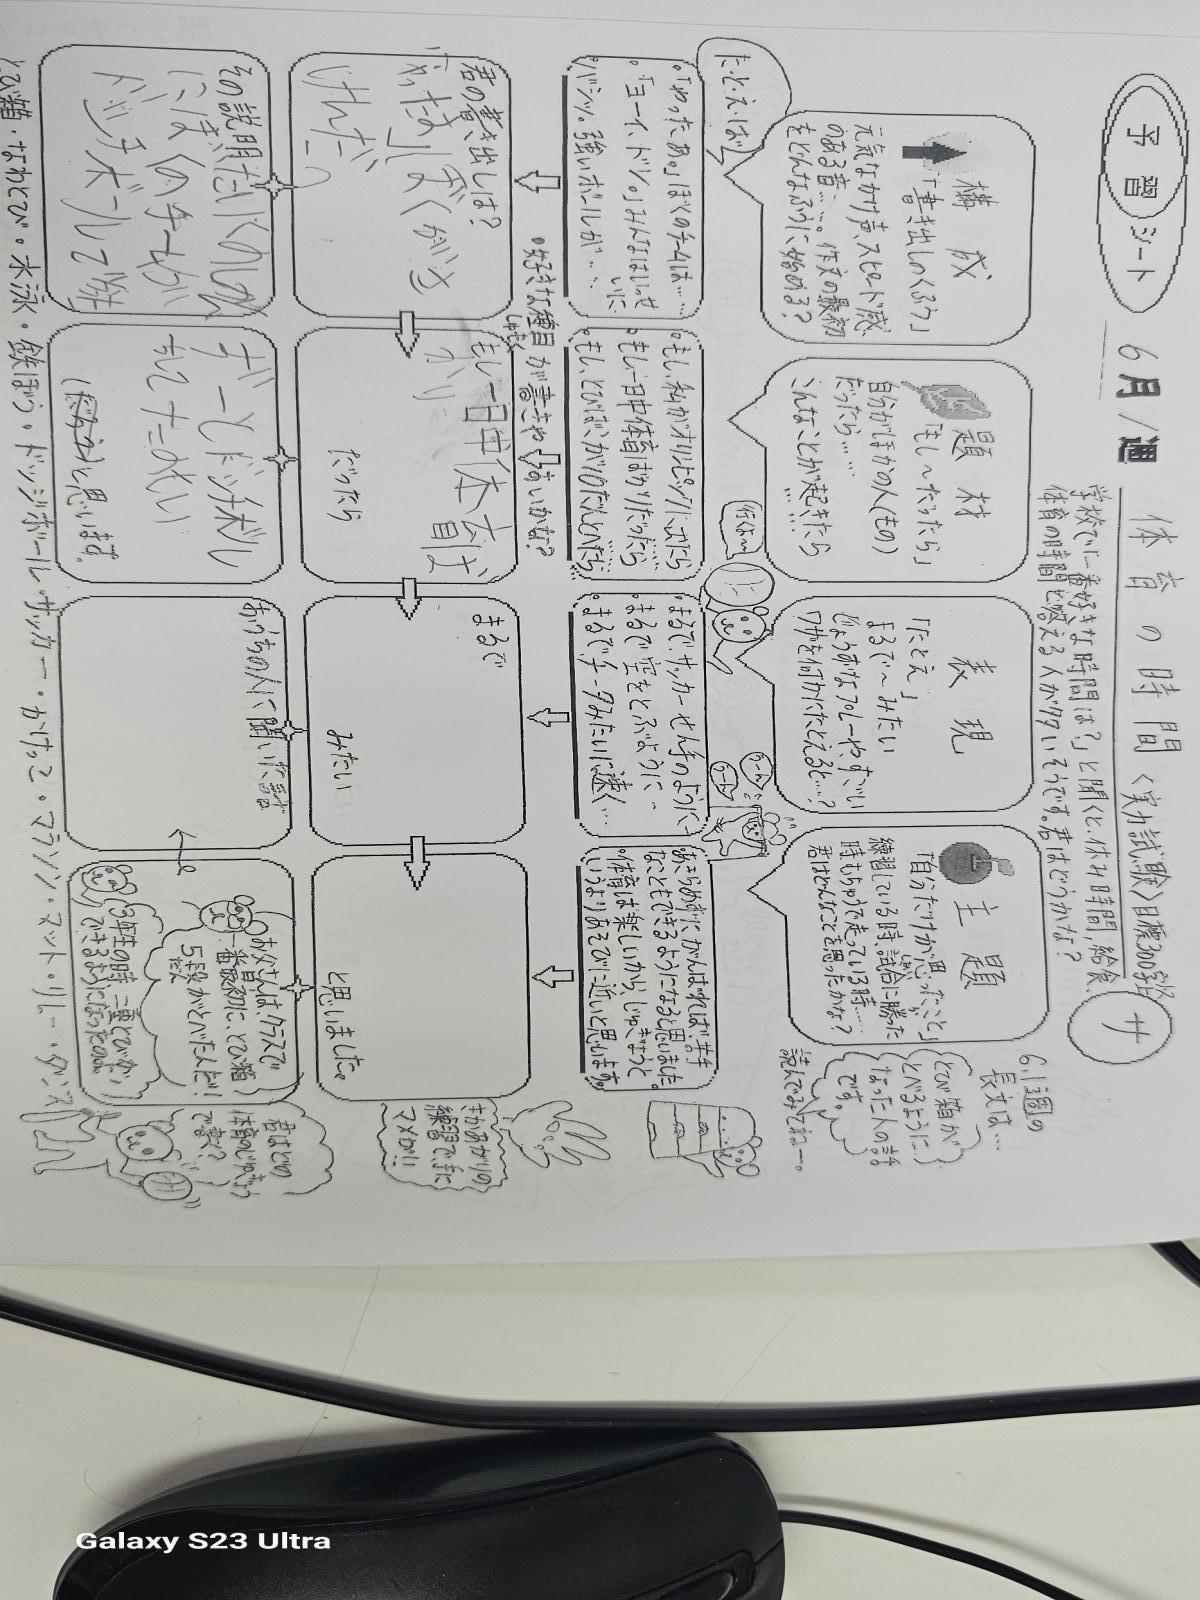 予習シート
6月1週
体育の時間
〈実力試験〉目標300字
サ
学校で「一番好きな時間は?」と聞くと、休み時間、給食、
体育の時間と答える人が多いそうです。君はどうかな?
6.1週の
長文は…
とび箱が
とべるように
なった人の話
です。
読んでみてねー。
構成
「書き出しのくふう」
元気なかけ声、スピード感
のある音……。作文の最初
をどんなふうに始める?
題材
「もし〜だったら」
自分がほかの人(もの)
だったら……
こんなことが起きたら
……
表現
「たとえ」
まるで〜みたい
じょうずなプレーやすごい
ワザを何かにたとえると…?
主題
「自分だけが思ったこと」
練習している時、試合に勝った
時、もちろん走っている時……
君はどんなことを思ったかな?
たとえば
行くよ〜
うーん
うーん
。「やったあ。」ぼくのチームは……
。「ヨーイ、ドン。」みんなはいっせいに
。バシッ。強いボールが……
。もし、私がオリンピックに出たら
。もし、一日中体育ばかりだったら
。もし、とびばこが10だんとべたら
。まるで、サッカーせん手のように…
。まるで空をとぶように…
。まるで、チータみたいに速く…
。あきらめずにがんばれば、苦手
なこともできるようになると思いました。
。体育は楽しいから、じゅぎょうと
いうよりあそびに近いと思います。
。好きな種目が書きやすいかな?
しゅもく
君の書き出しは?
「やったあ」ぼくがさ
けんだ。
もし一日中体育ば
かり
だったら
まるで
みたい
と思いました。
きかあがりの
練習で、手に
マメが!!
その説明
ぼくのチームが
ドッチボールで勝
ずーとドッチボル
(だろう)と思います。
おうちの人に聞いた話
お父さんは、クラスで
一番最初に、とび箱
5段がとべたんだ!
だん
3年生の時、二重とびが
できるようになったのよ。
君はどの
体育のじゅぎょう
で書く?
とび箱・なわとび・水泳・鉄ぼう・ドッジボール・サッカー・かけっこ・マラソン・マット・リレー・ダンス
Galaxy S23 Ultra